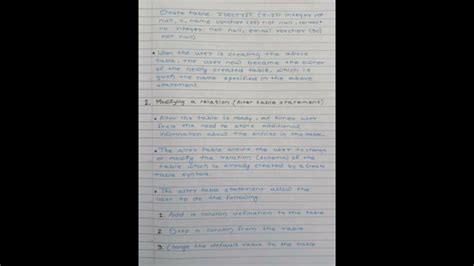 Create table (s-id integer not
null, s_name varchar (20) not null, contact
no integer not null, e-mail varchar (30)
not null)
• When the user is creating the above
table, the user now became the owner
of the newly created table, which is
given the name specified in the above
statement
2. Modifying a relation (Alter table statement)
• After the table is ready, at times user
feels the need to store additional
information about the entries in the table.
• The alter table allows the user to
or modify the relation (schema) of the
table which is already created by a create
table syntax.
• The alter table statement allow the
user to do the following
1. Add a column definition to the table
2. Drop a column from the table
3. Change the default value to the table